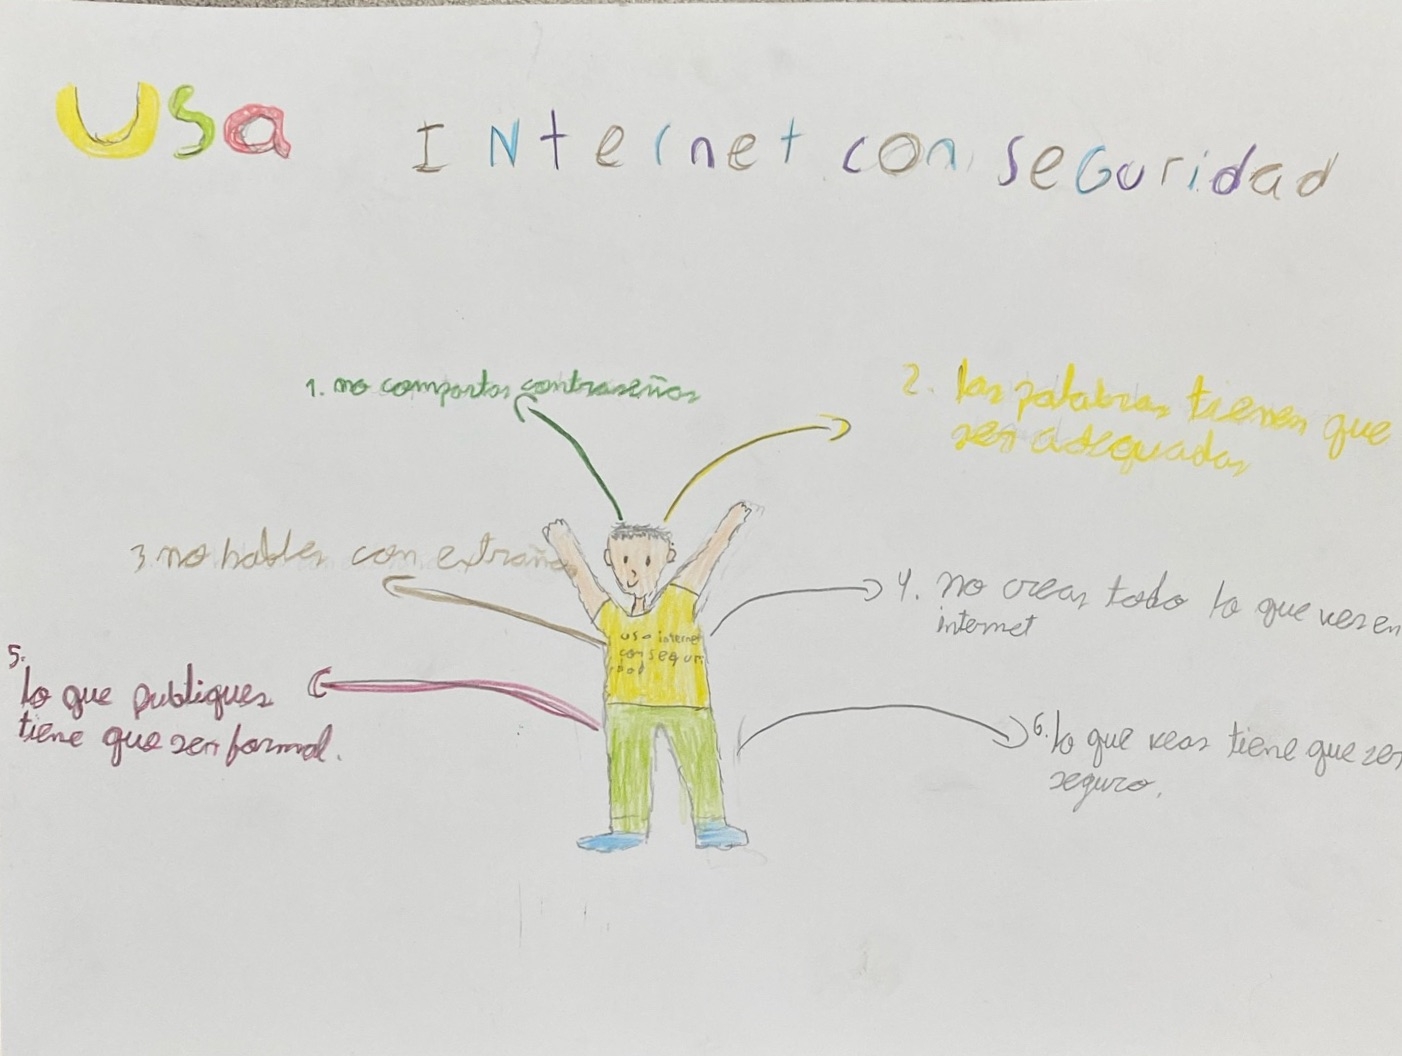 Usa Internet con seguridad
1. no compartas contraseñas
2. las palabras tienen que
ser adequadas
3. no hables con extraños
4. no creas todo lo que ves en
internet
5.
lo que publiques
tiene que ser formal.
6. lo que veas tiene que ser
seguro.
usa internet
con seguri
dad